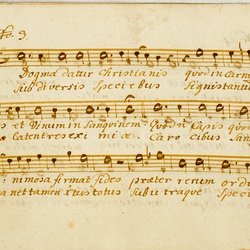 No. 3.
Dogma datur Christianis quod in Carn
Sub diversis Speciebus Signis tantu
et Vinum in Sanguinem Quod non Capis quo
Latent res exi miæ. Caro cibus San
nimosa firmat fides præter rerum ordi
net tamen Xtus totus Sub utraque Speci